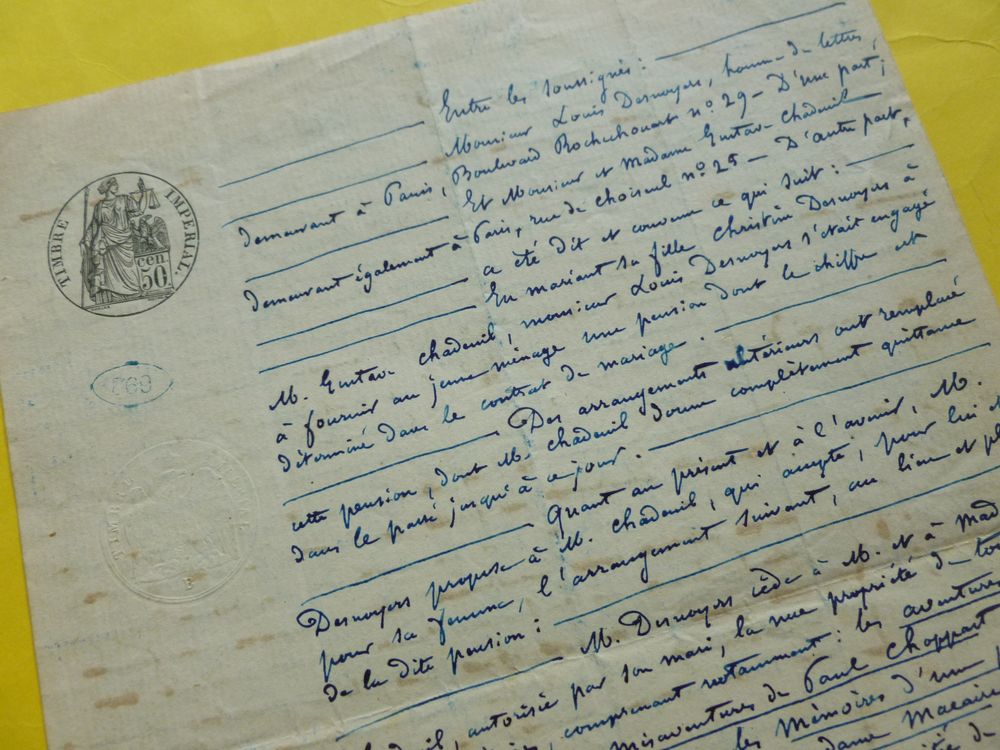 TIMBRE IMPERIAL.
cen
50.
769
Entre les soussignés :
Monsieur Louis Desnoyers, homme de lettres,
demeurant à Paris, Boulevard Rochechouart n° 29 — D'une part ;
Et Monsieur et Madame Gustave Chadeuil
demeurant également à Paris, rue de Choiseul n° 25 — D'autre part,
a été dit et convenu ce qui suit :
En mariant sa fille Christine Desnoyers à
M. Gustave Chadeuil, monsieur Louis Desnoyers s'était engagé
à fournir au jeune ménage une pension dont le chiffre est
déterminé dans le contrat de mariage.
Des arrangements ultérieurs ont remplacé
cette pension, dont M. Chadeuil donne complètement quittance
dans le passé jusqu'à ce jour.
Quant au présent et à l'avenir, M.
Desnoyers propose à M. Chadeuil, qui accepte, pour lui et
pour sa femme, l'arrangement suivant, au lieu et pl
de la dite pension :
M. Desnoyers cède à M. et à Mad
autorisée par son mari, la nue propriété de to
comprenant notamment : les aventures
mésaventures de Paul Choppart
les Mémoires d'une
dame Macaire
de